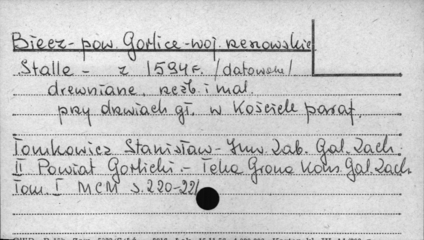 Biecz - pow. Gorlice - woj. rzeszowskie
Stalle - z 1594 r. /datowane/
drewniane, rzeźb. i mal.
przy drzwiach gł. w Kościele paraf.
Tomkowicz Stanisław - Inw. Zab. Gal. Zach.
II Powiat Gorlicki. - Teka Grona Kons. Gal. Zach.
Tom. I MCM s. 220-221